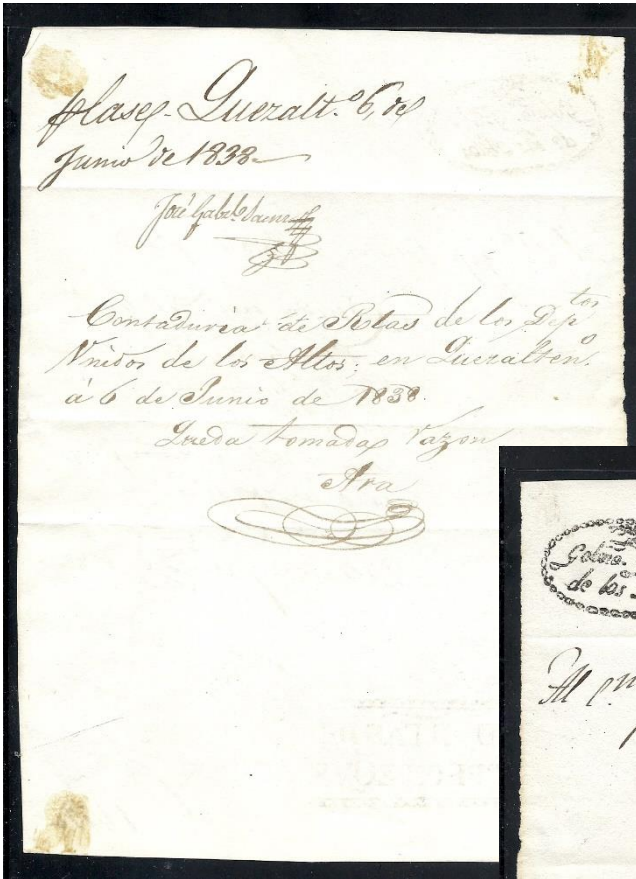 Quezalt.º 6, de
Junio de 1838
José Gab.l Saenz
Contaduria de Rtas de los Dep.tos
Vnidos de los Altos: en Quezalten.º
á 6 de Junio de 1838.
Queda tomada razon
Ara
Gobno.
de los
Al C.